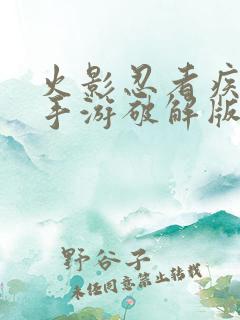 火影忍者疾
手游破解版
野谷子
未经同意禁止转载